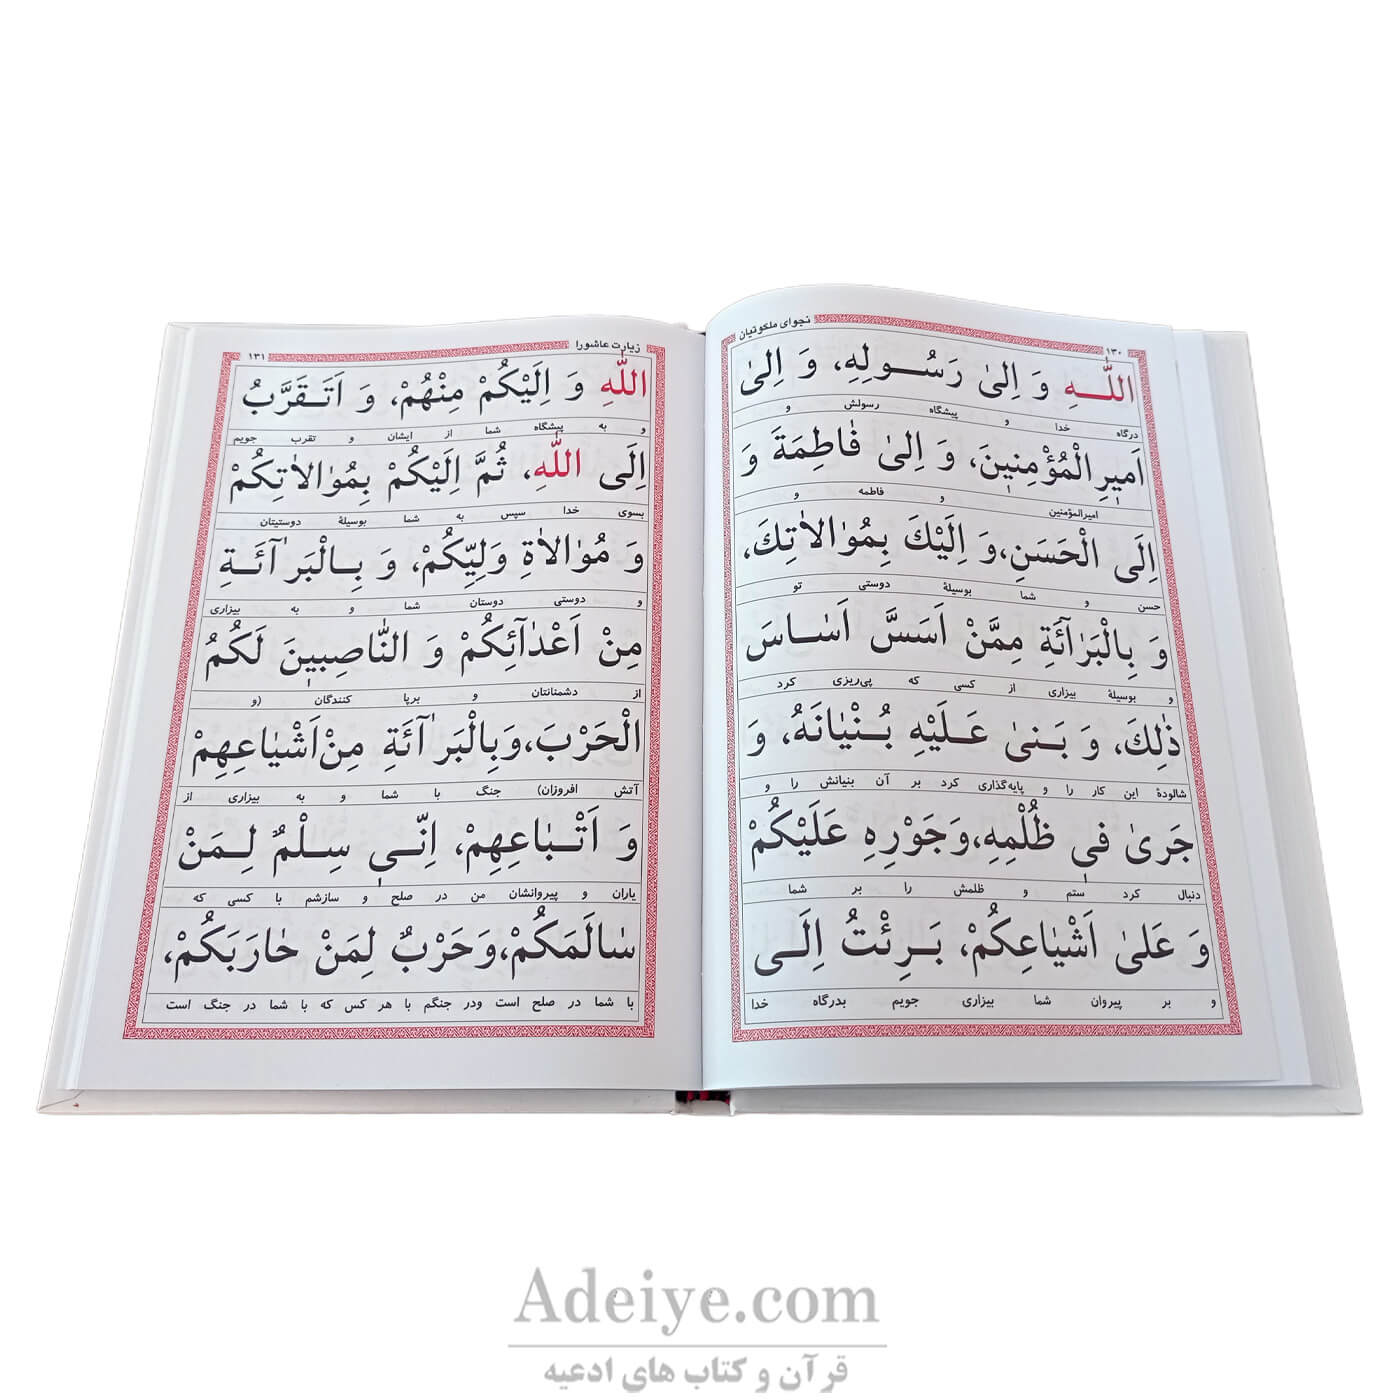 ۱۳۰ نجوای ملکوتیان
اللّٰـــهِ وَ اِلىٰ رَسُـــولِهِ، وَ اِلىٰ
درگاه خدا و پیشگاه رسولش و
اَمیرِالْمُؤْمِنینَ، وَ اِلىٰ فٰاطِمَةَ وَ
امیرالمؤمنین و فاطمه و
اِلَى الْحَسَنِ، وَ اِلَیْكَ بِمُوٰالاٰتِكَ،
حسن و شما بوسیلهٔ دوستی تو
وَ بِالْبَرٰآئَةِ مِمَّنْ اَسَسَّ اَسٰـــاسَ
و بوسیلهٔ بیزاری از کسی که پی‌ریزی کرد
ذٰلِكَ، وَ بَـنىٰ عَـلَیْهِ بُـنْیٰانَهُ، وَ
شالودهٔ این کار را و پایه‌گذاری کرد بر آن بنیانش را و
جَرىٰ فی ظُلْمِهِ، وَجَوْرِهِ عَلَیْكُمْ
دنبال کرد ستم و ظلمش را بر شما
وَ عَلىٰ اَشْیٰاعِكُمْ، بَـرِئْتُ اِلَـــى
و بر پیروان شما بیزاری جویم بدرگاه خدا
زیارت عاشورا ۱۳۱
اللّٰهِ وَ اِلَیْكُمْ مِنْهُمْ، وَ اَتَـقَرَّبُ
و به پیشگاه شما از ایشان و تقرب جویم
اِلَى اللّٰهِ، ثُمَّ اِلَیْكُمْ بِمُوٰالاٰتِكُمْ
بسوی خدا سپس به شما بوسیلهٔ دوستیتان
وَ مُوٰالاٰةِ وَلِیِّكُمْ، وَ بِـالْبَرٰآئَـةِ
و دوستی دوستان شما و به بیزاری
مِنْ اَعْدٰآئِكُمْ وَ النّٰاصِبینَ لَكُمُ
از دشمنانتان و برپا کنندگان (و
الْحَرْبَ، وَبِالْبَرٰآئَةِ مِنْ اَشْیٰاعِهِمْ
آتش افروزان) جنگ با شما و به بیزاری از
وَ اَتْـبٰاعِهِمْ، اِنّـی سِـلْمٌ لِـمَنْ
یاران و پیروانشان من در صلح و سازشم با کسی که
سٰالَمَكُمْ، وَحَرْبٌ لِمَنْ حٰارَبَكُمْ،
با شما در صلح است ودر جنگم با هر کس که با شما در جنگ است
Adeiye.com
قرآن و کتاب های ادعیه